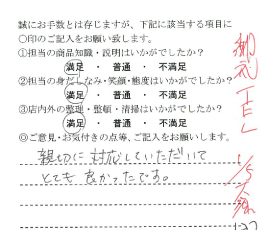 誠にお手数とは存じますが、下記に該当する項目に
○印のご記入をお願い致します。
①担当の商品知識・説明はいかがでしたか?
満足 ・ 普通 ・ 不満足
②担当の身だしなみ・笑顔・態度はいかがでしたか?
満足 ・ 普通 ・ 不満足
③店内外の整理・整頓・清掃はいかがでしたか?
満足 ・ 普通 ・ 不満足
◎ご意見・お気付きの点等、ご記入をお願いします。
親切に対応していただいて
とても良かったです。
御礼TEL